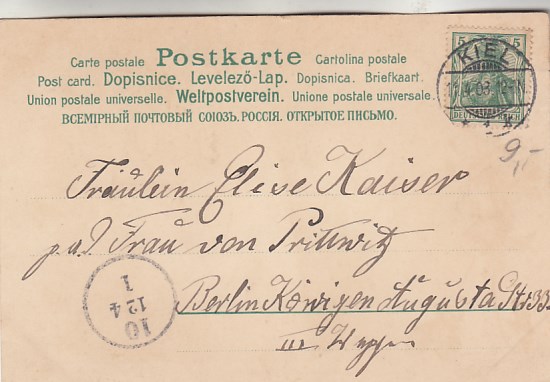 Carte postale Postkarte Cartolina postale
Post card. Dopisnice. Levelező-Lap. Dopisnica. Briefkaart.
Union postale universelle. Weltpostverein. Unione postale universale.
ВСЕМІРНЫЙ ПОЧТОВЫЙ СОЮЗЪ. РОССІЯ. ОТКРЫТОЕ ПИСЬМО.
5 5
KIEL
4.03.
DEUTSCHES REICH
9,-
Fräulein Elise Kaiser
Frau von Prittwitz
Berlin Königen Augusta Str 33
III
10
124
1